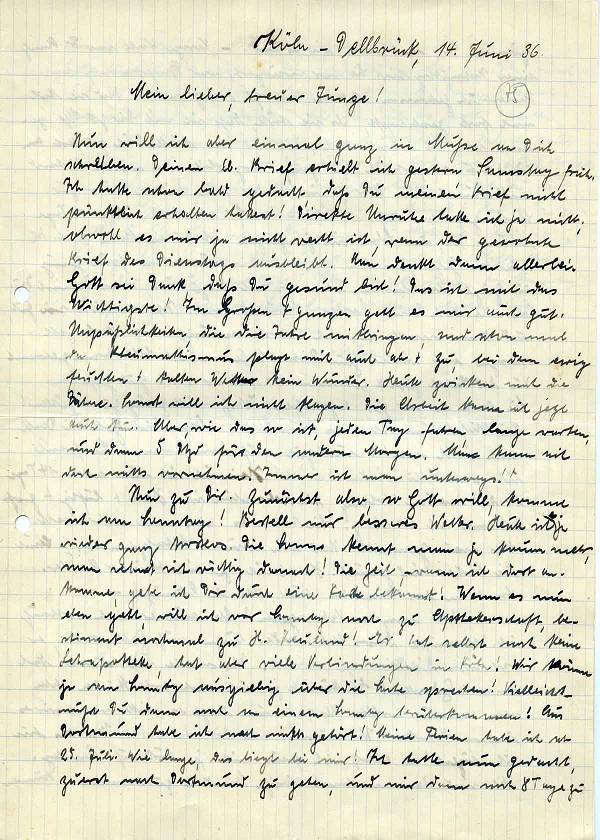 Köln - Dellbrück, 14. Juni 36.
75
Mein lieber, treuer Junge!
Nun will ich aber einmal ganz in Muße an Dich
schreiben. Deinen lb. Brief erhielt ich gestern Samstag früh.
Ich hatte schon bald gedacht daß Du meinen Brief nicht
pünktlich erhalten hattest! Direkte Unruhe hatte ich ja nicht,
obwohl es mir ja nicht recht ist, wenn der gewohnte
Brief des Dienstags ausbleibt. Man denkt dann allerlei.
Gott sei Dank daß Du gesund bist! Das ist mit das
Wichtigste! Im Großen + ganzen geht es mir auch gut.
Unpäßlichkeiten, die die Jahre mitbringen und schon mal
da Rheumatismus plagt mich auch ab + zu, bei dem ewig
feuchten + kalten Wetter kein Wunder. Heute zwicken mal die
Zähne. Sonst will ich nicht klagen. Die Arbeit kenne ich jetzt
auch. Aber, wie das so ist, jeden Tag fahren lange warten,
und dann 5 Uhr für den andern Morgen. Man kann sich
doch nichts vornehmen. Immer ist man unterwegs!
Nun zu Dir. Zunächst also, so Gott will, komme
ich am Sonntag! Bestell nur besseres Wetter. Heute ist's ja
wieder ganz trostlos. Die Sonne kennt man ja kaum mehr,
man sehnt sich richtig danach! Die Zeil, wann ich dort an-
komme gebe ich Dir durch eine Karte bekannt! Wenn es nun
eben geht, will ich vor Sonntag noch zu Apothekerschaft, be-
stimmt nochmal zu H. Neuland! Er hat selbst noch keine
Lehrapotheke, hat aber viele Verbindungen in Köln! Wir können
ja am Sonntag ausgiebig über die Sache sprechen! Vielleicht
mußt Du dann noch an einem Sonntag herüberkommen! Aus
Dortmund habe ich noch nichts gehört! Meine Ferien habe ich ab
25. Juli. Wie lange, das liegt bei mir! Ich hatte nun gedacht,
zuerst nach Dortmund zu gehen, und mir dann noch 8 Tage zu